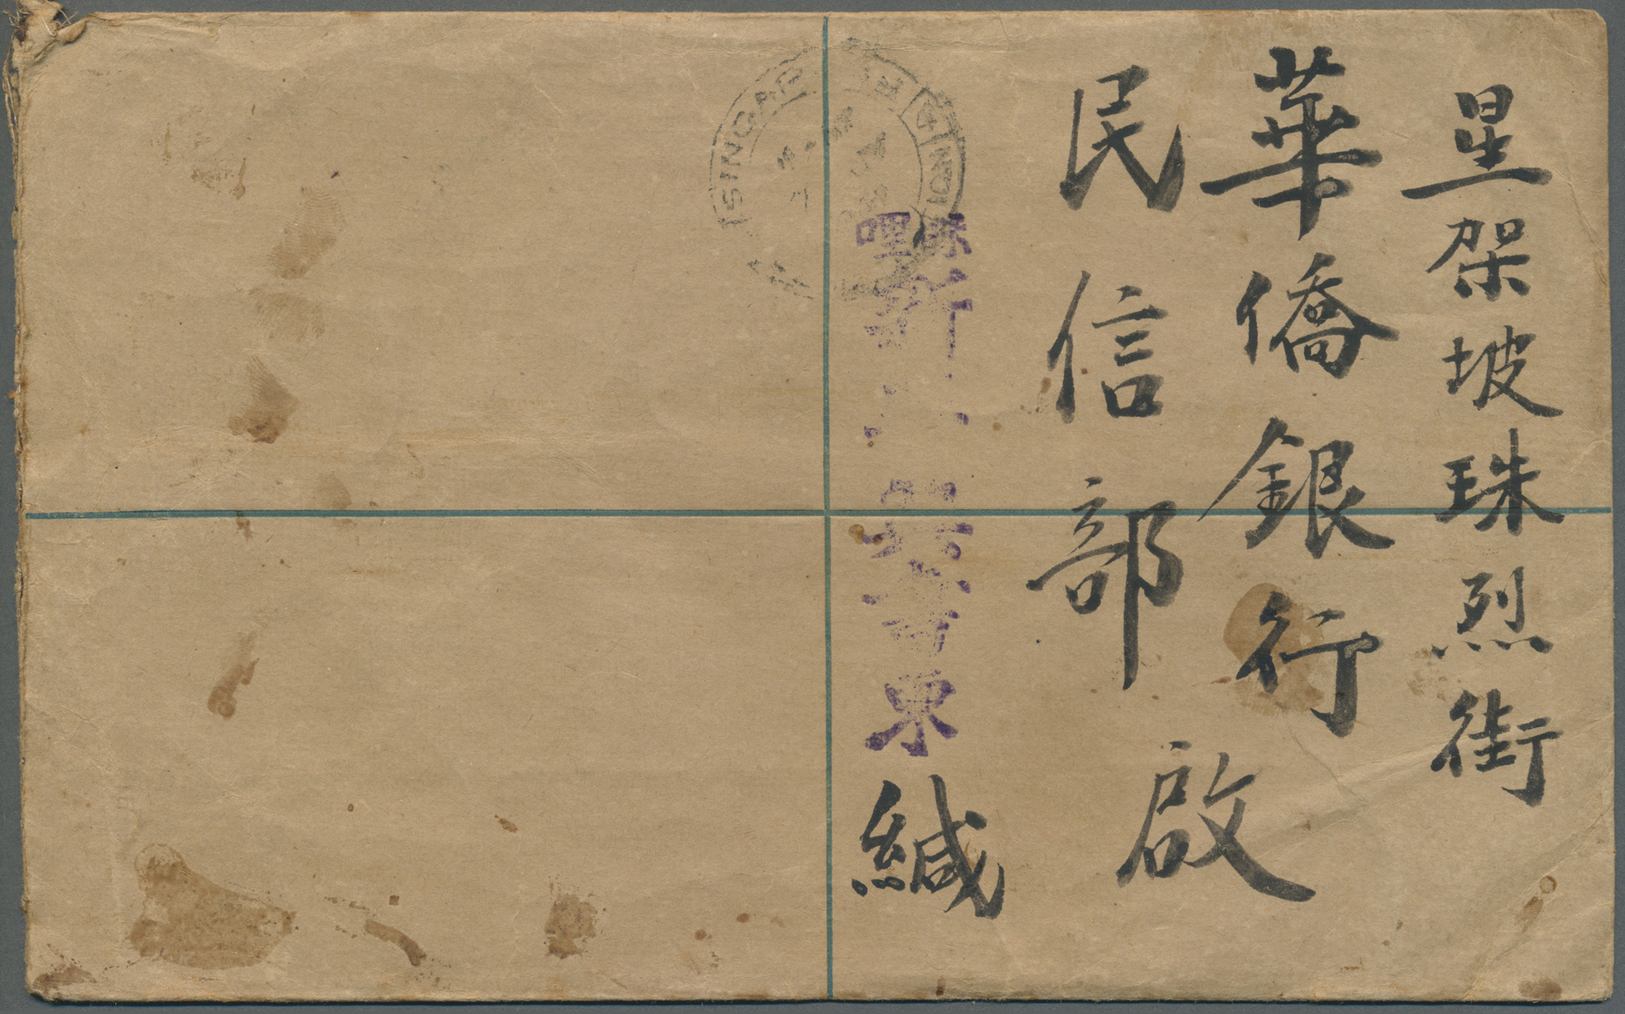 星架坡珠烈街
華僑銀行
民信部啟
緘
SINGAP